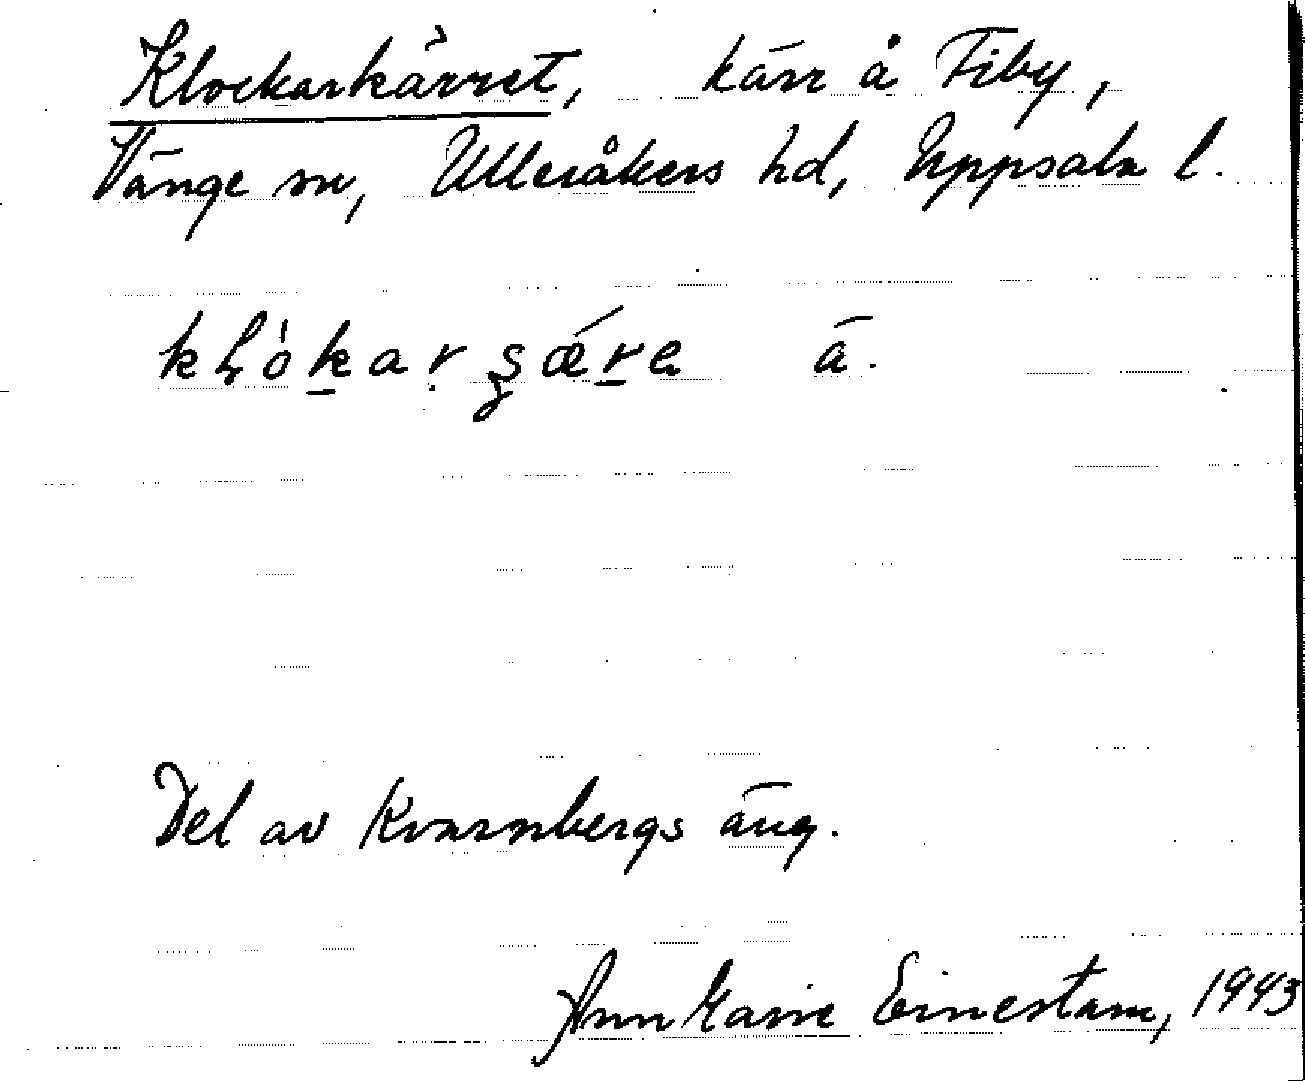 Klockarkärret, kärr å Fiby,
Vänge sn, Ulleråkers hd, Uppsala l.
ä.
Del av Kvarnbergs äng.
Ann Marie Einestam, 1943